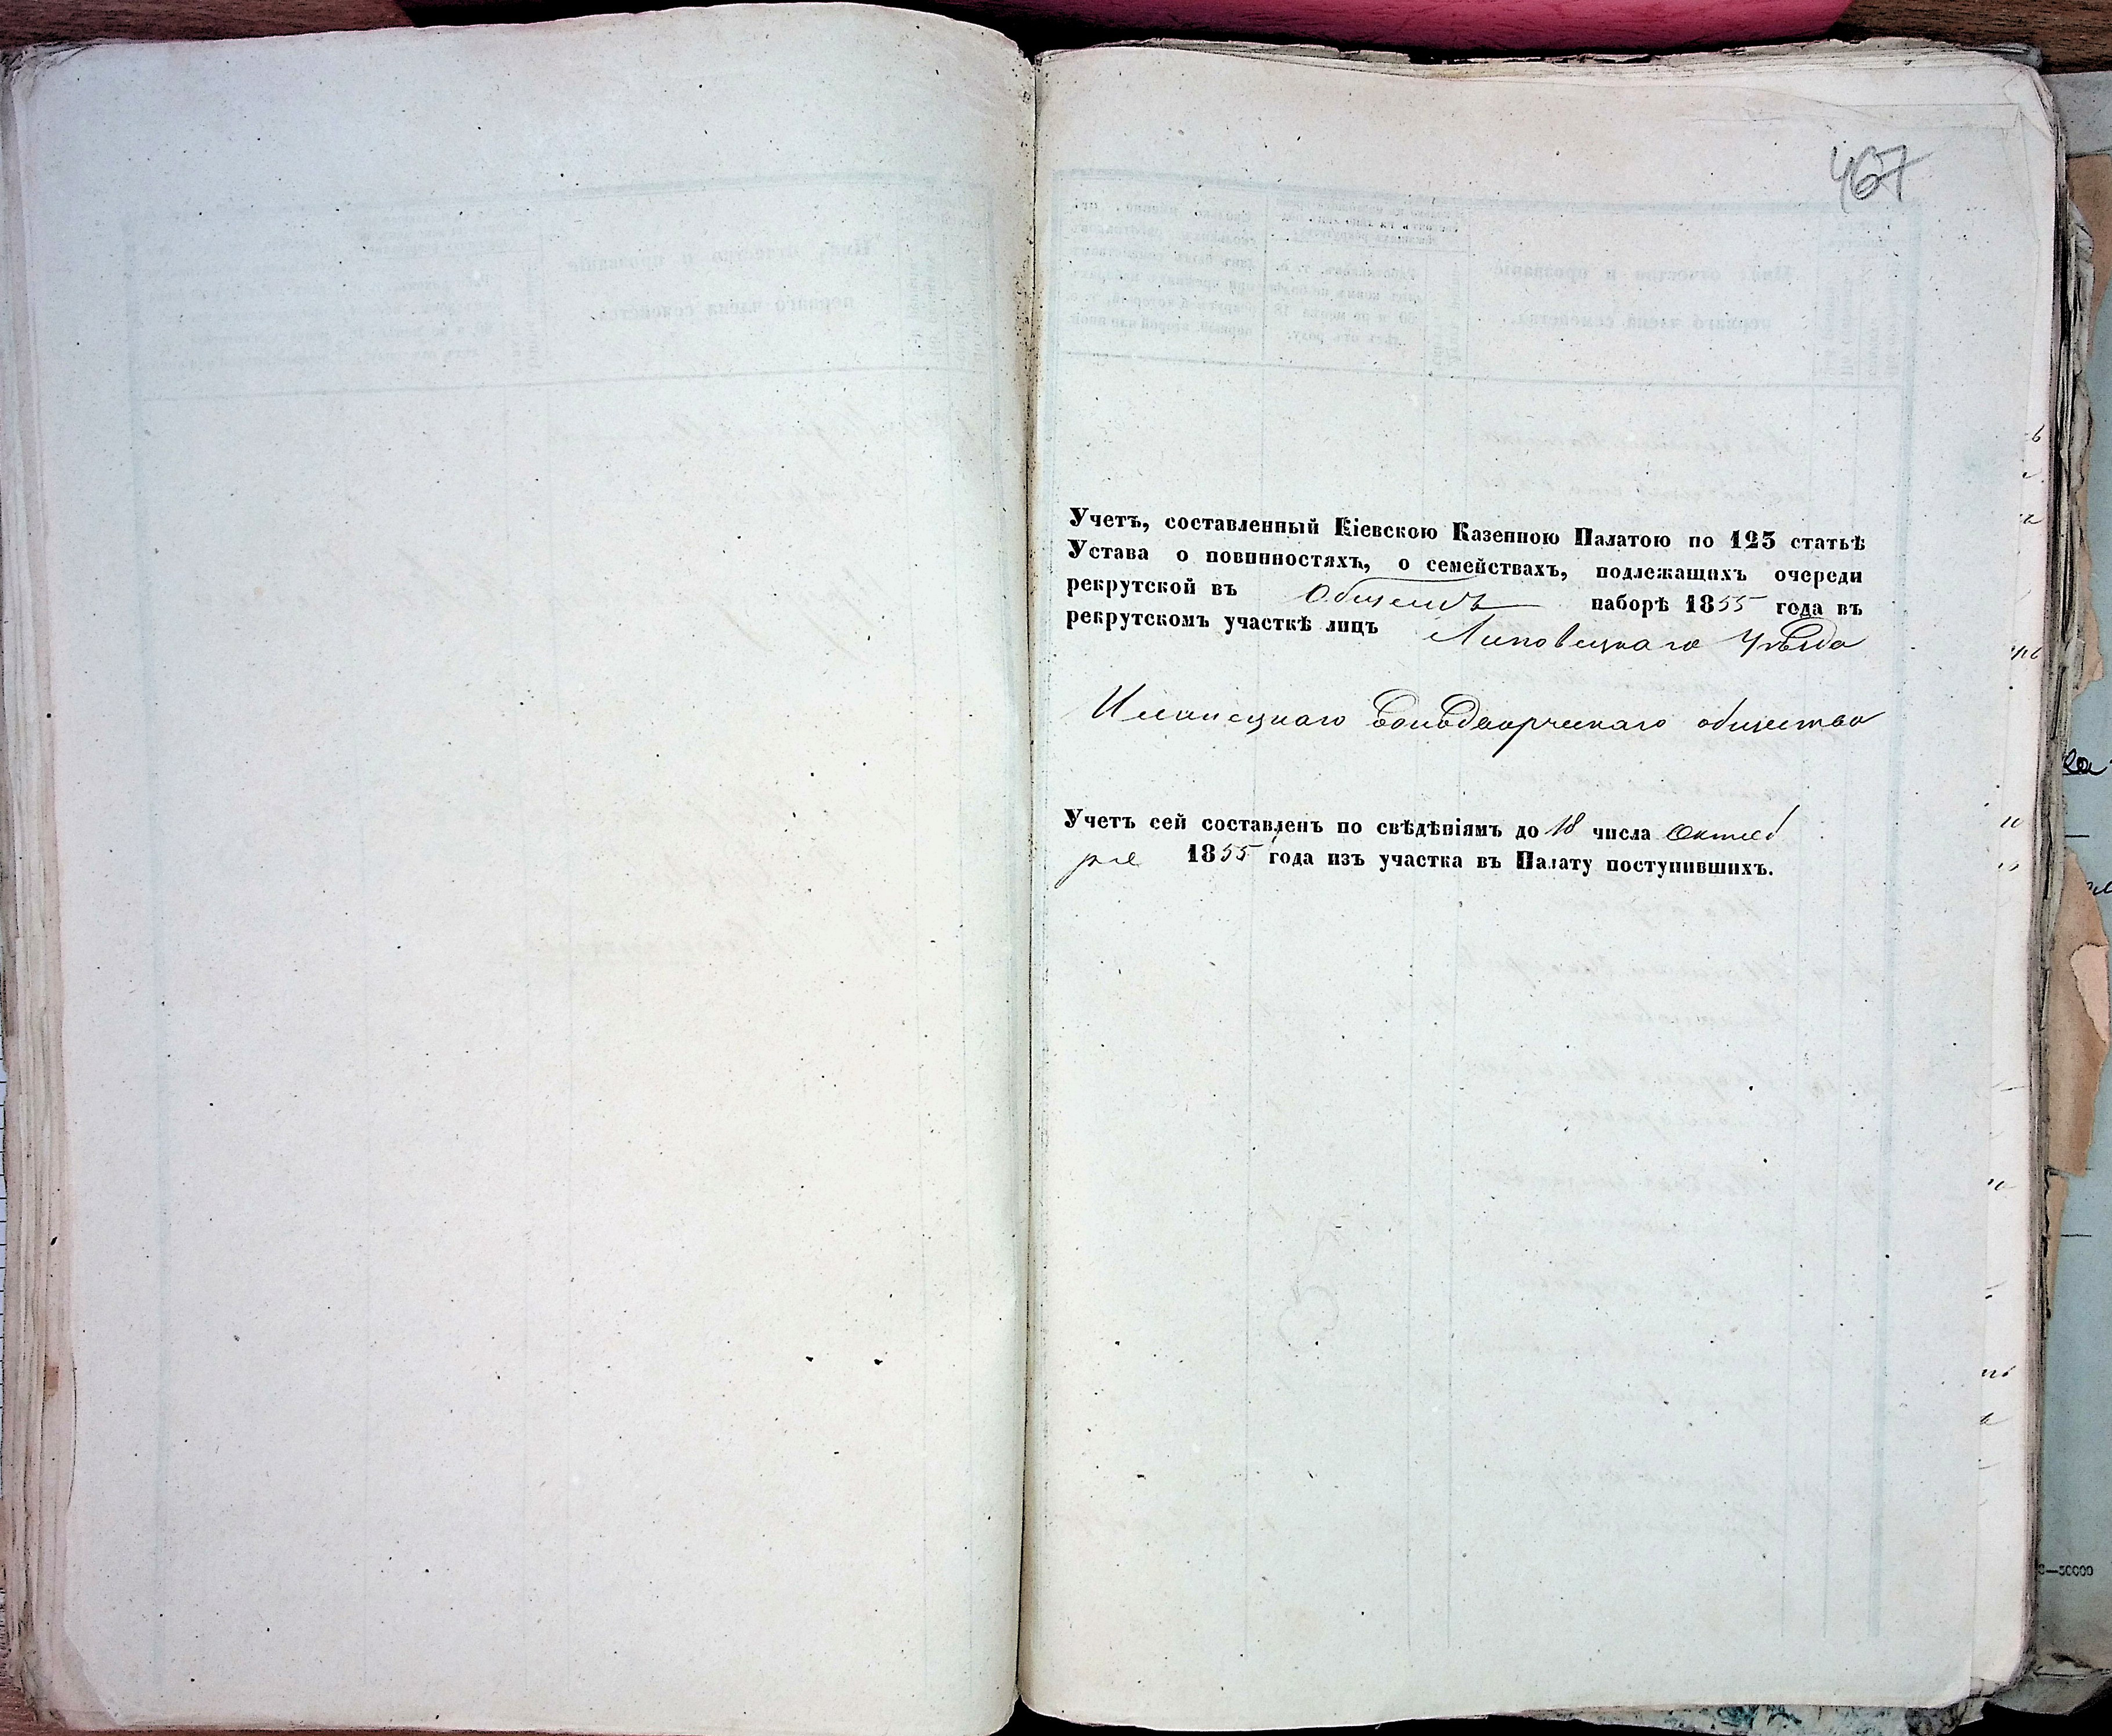 467
Учетъ, составленный Кіевскою Казенною Палатою по 125 статьѣ
Устава о повинностяхъ, о семействахъ, подлежащихъ очереди
рекрутской въ Общемъ наборѣ 1855 года въ
рекрутскомъ участкѣ лицъ Липовецкаго Уѣзда
общества
Учетъ сей составленъ по свѣдѣніямъ до 18 числа Октяб
ря 1855 года изъ участка въ Палату поступившихъ.